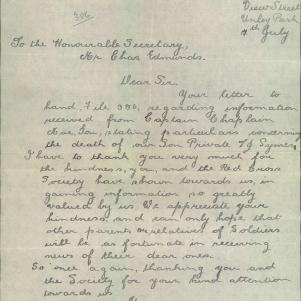 306
View Street
Unley Park
4th July
To the Honourable Secretary,
Mr Chas Edmunds.
Dear Sir.
Your letter to
hand, File 306, regarding information
received from Captain Chaplain
stating particulars concerning
the death of our Son Private
I have to thank you very much for
the kindness, you, and the Red Cross
Society have shown towards us, in
gaining information so greatly
valued by us. We appreciate your
kindness, and can only hope that
other parents or relatives of Soldiers
will be as fortunate in receiving
news of their dear ones.
So once again, thanking you and
the Society for your kind attention
towards us